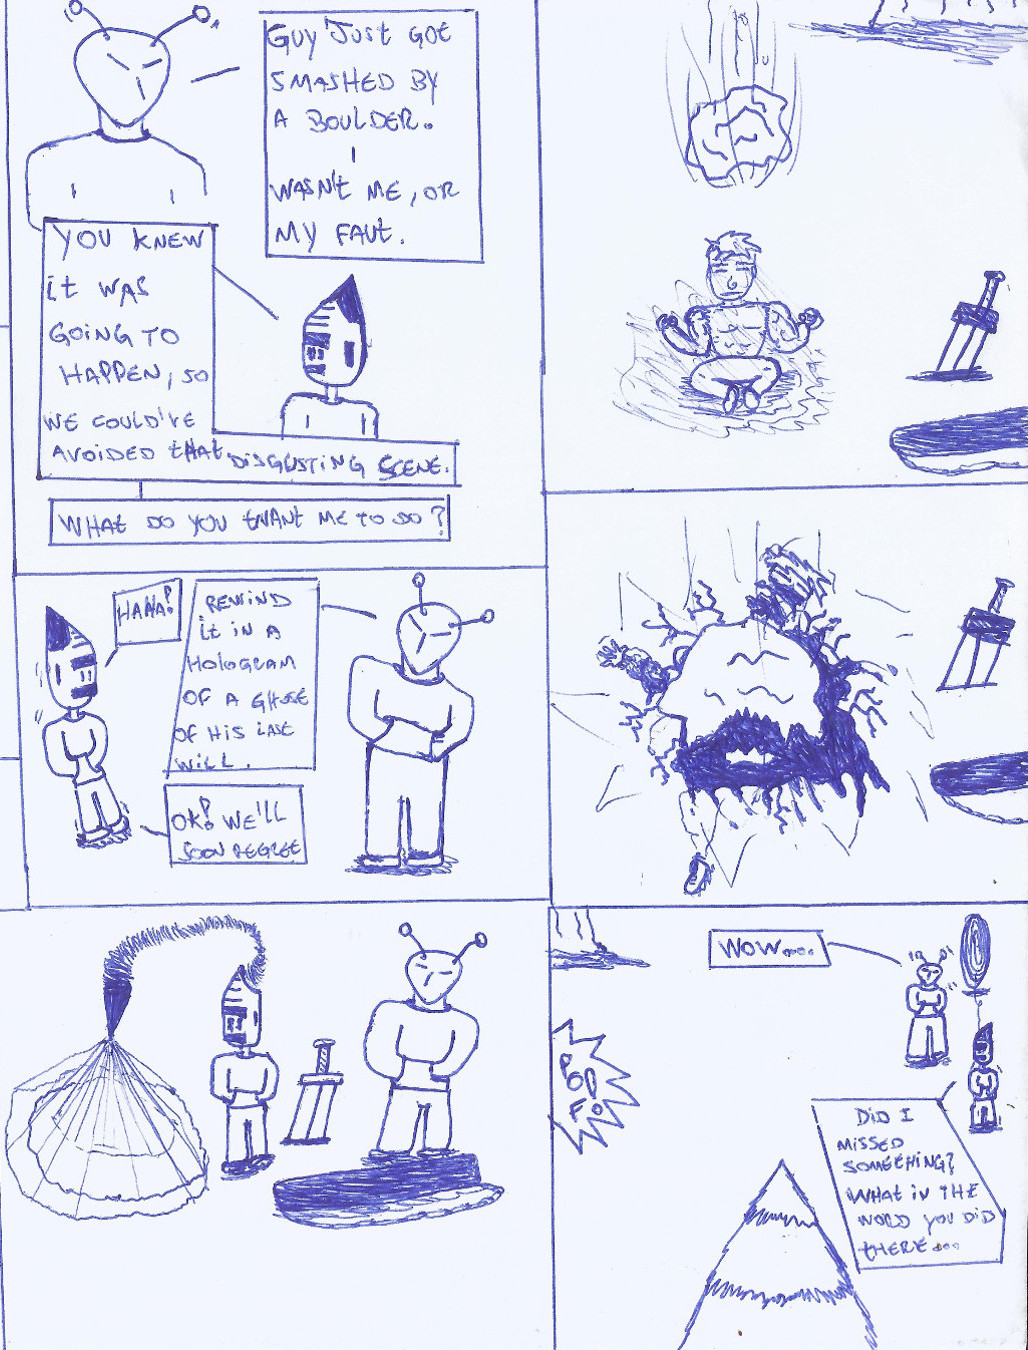 GUY JUST GOT
SMASHED BY
A BOULDER.
I
WASN'T ME, OR
MY FAUT.
YOU KNEW
IT WAS
GOING TO
HAPPEN, SO
WE COULD'VE
AVOIDED THAT DISGUSTING SCENE.
WHAT DO YOU WANT ME TO DO?
HAHA!
REWIND
IT IN A
HOLOGRAM
OF A GHOST
OF HIS LAST
WILL.
OK! WE'LL
SOON REGRET
WOW....
POOF!
DID I
MISSED
SOMETHING?
WHAT IN THE
WORLD YOU DID
THERE...